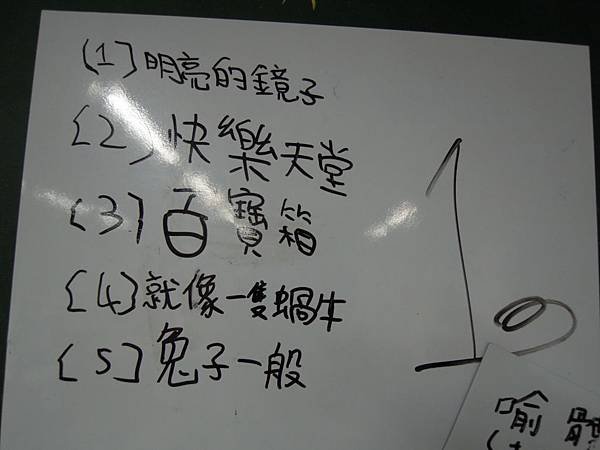 (1)明亮的鏡子
(2)快樂天堂
(3)百寶箱
(4)就像一隻蝸牛
(5)兔子一般
1
喻體